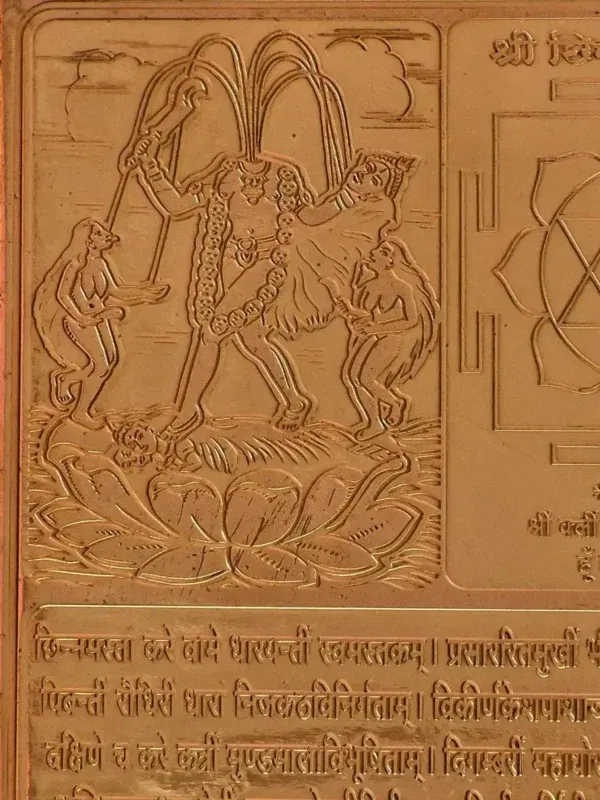 श्री
श्रीं क्लीं
छिन्नमस्ता करे वामे धारयन्तीं स्वमस्तकम्। प्रसाररितमुखीं
पिबन्तीं रौधिरीं धारा निजकठविनिर्मताम्। विकीर्णकेशपाशा
दक्षिणे च करे कत्रीं मुण्डमालाविभूषिताम्। दिगम्बरीं महाघोर